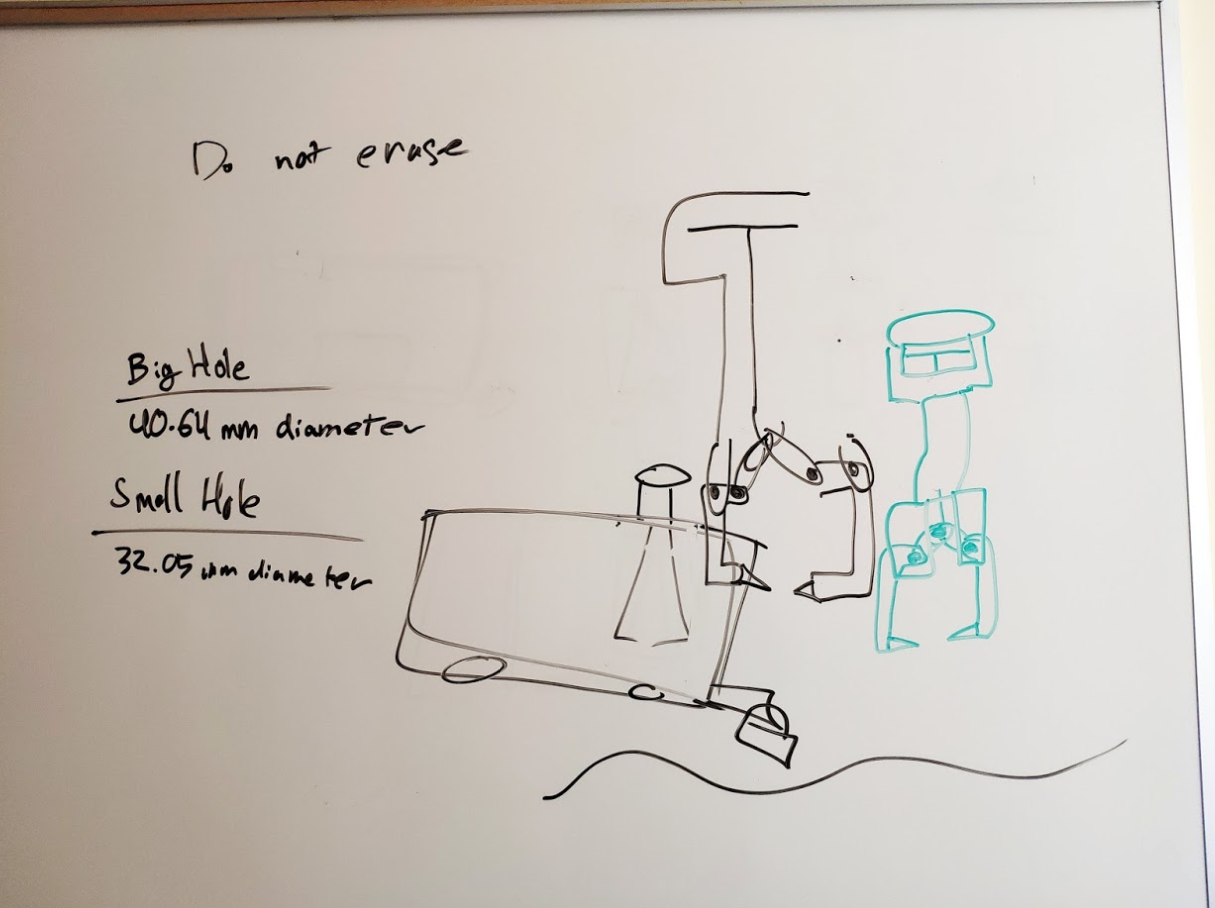 Do not erase
Big Hole
40.64 mm diameter
Small Hole
32.05 mm diameter